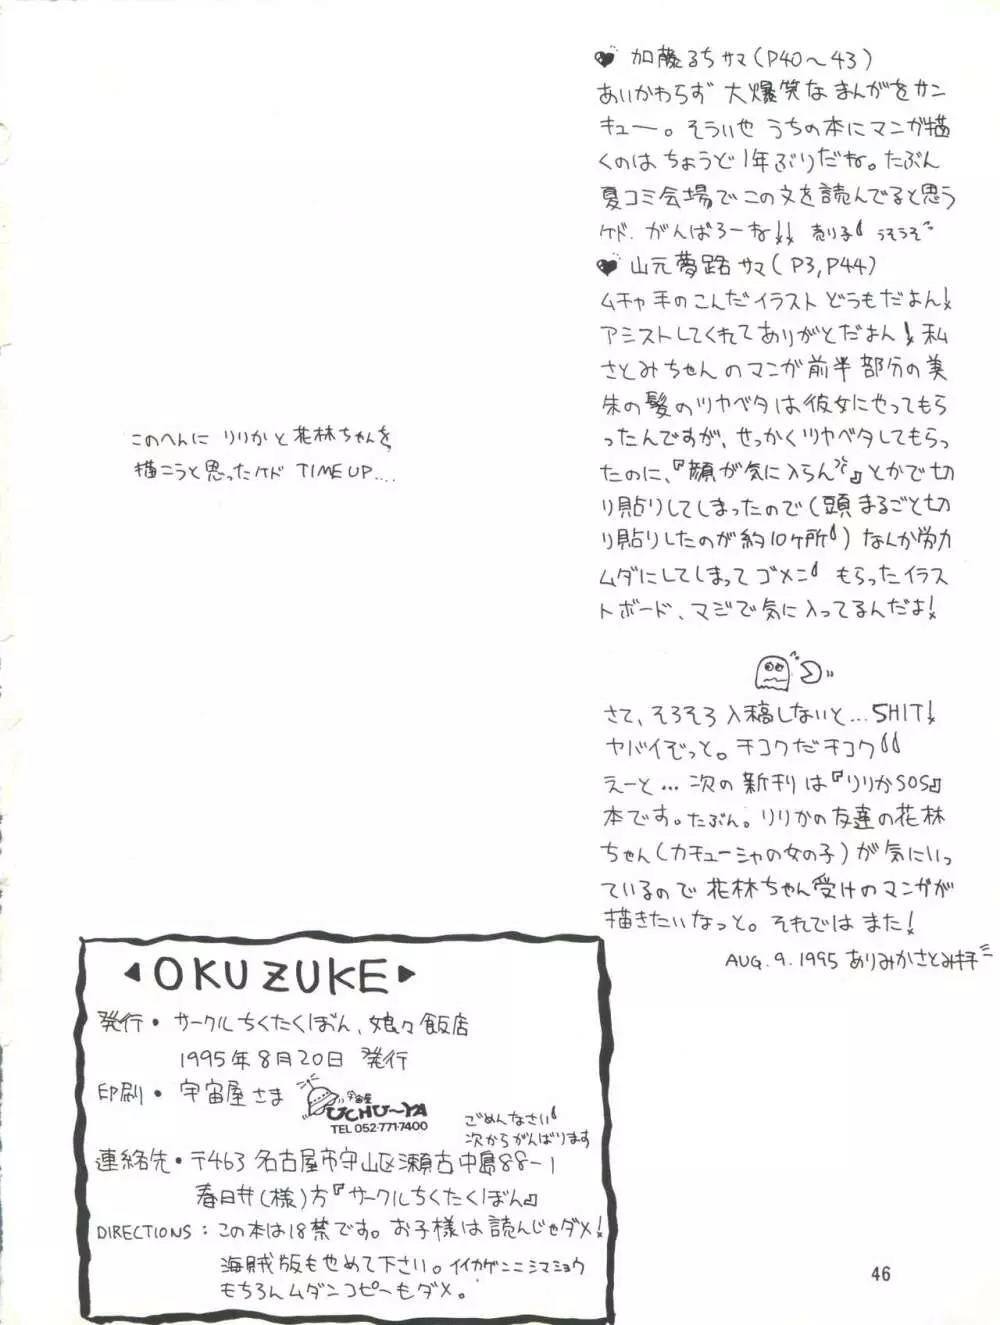 ♥ 加藤るち サマ(P40〜43)
あいかわらず 大爆笑な まんがをサン
キュー。そういや うちの本にマンガ描
くのは ちょうど 1年ぶりだね。たぶん
夏コミ会場で この文を読んでると思う
ケド. がんばろーね!! 売り子 うそうそ
♥ 山元夢路 サマ(P3,P44)
ムチャ手のこんだイラスト どうもだよん!
アシストしてくれてありがとだよん! 私
さとみちゃんのマンガ前半部分の美
朱の髪のツヤベタは彼女にやってもら
ったんですが、せっかくツヤベタしてもらっ
たのに、『顔が気に入らん』とかで切
り貼りしてしまったので(頭まるごと切
り貼りしたのが約10ヶ所)なんか労力
ムダにしてしまってゴメン もらったイラス
トボード、マジで気に入ってるんだよ!
さて、そろそろ入稿しないと...SHIT!
ヤバイぞっと。チコクだチコク
えーと...次の新刊は『りりかSOS』
本です。たぶん。りりかの友達の花林
ちゃん(カチューシャの女の子)が気にいっ
ているので 花林ちゃん受けのマンガが
描きたいなっと。それではまた!
AUG.9.1995 ありみかさとみ拝
このへんに りりかと花林ちゃんを
描こうと思ったケド TIME UP....
◀OKUZUKE▶
発行・サークルちくたくぼん、娘々飯店
1995年8月20日 発行
印刷・宇宙屋さま
宇宙屋
UCHU〜YA
TEL 052・771・7400
ごめんなさい
次からがんばります
連絡先・〒463 名古屋市守山区瀬古中島88-1
春日井(様)方『サークルちくたくぼん』
DIRECTIONS:この本は18禁です。お子様は読んじゃダメ!
海賊版もやめて下さい。イイカゲンニシマショウ
もちろんムダンコピーもダメ。
46